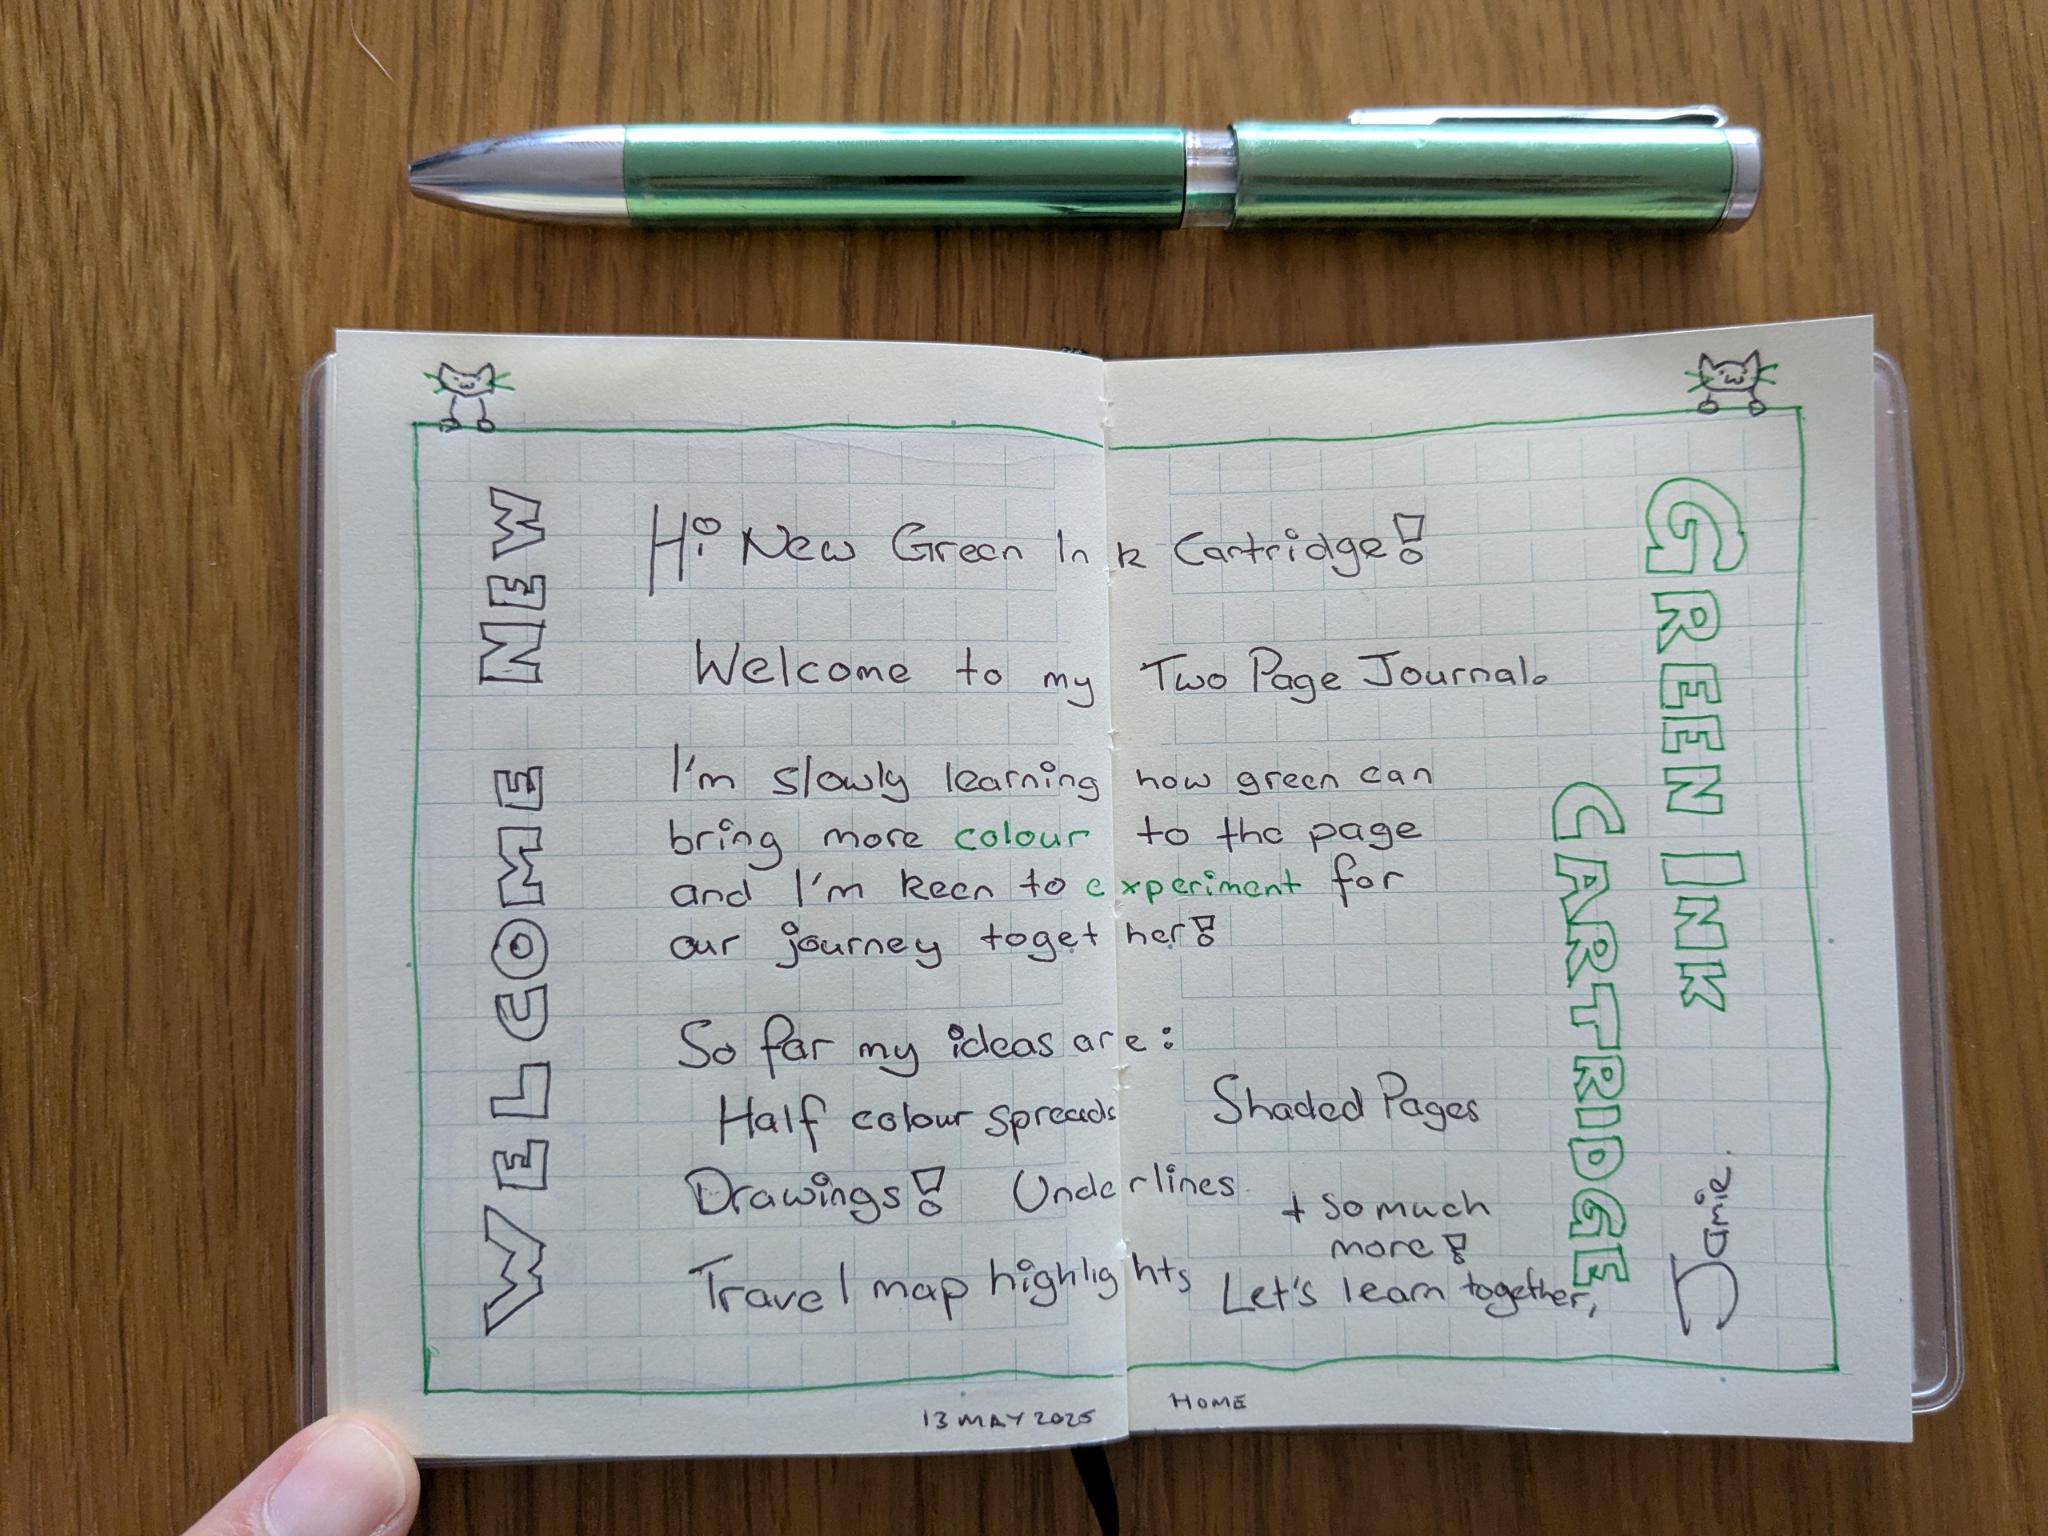 WELCOME NEW
Hi New Green Ink Cartridge!
Welcome to my Two Page Journal.
I'm slowly learning how green can
bring more colour to the page
and I'm keen to experiment for
our journey together!
So far my ideas are:
Half colour spreads Shaded Pages
Drawings! Underlines
+ so much
more!
Travel map highlights
Let's learn together,
Jamie.
GREEN INK
CARTRIDGE
13 MAY 2025 HOME